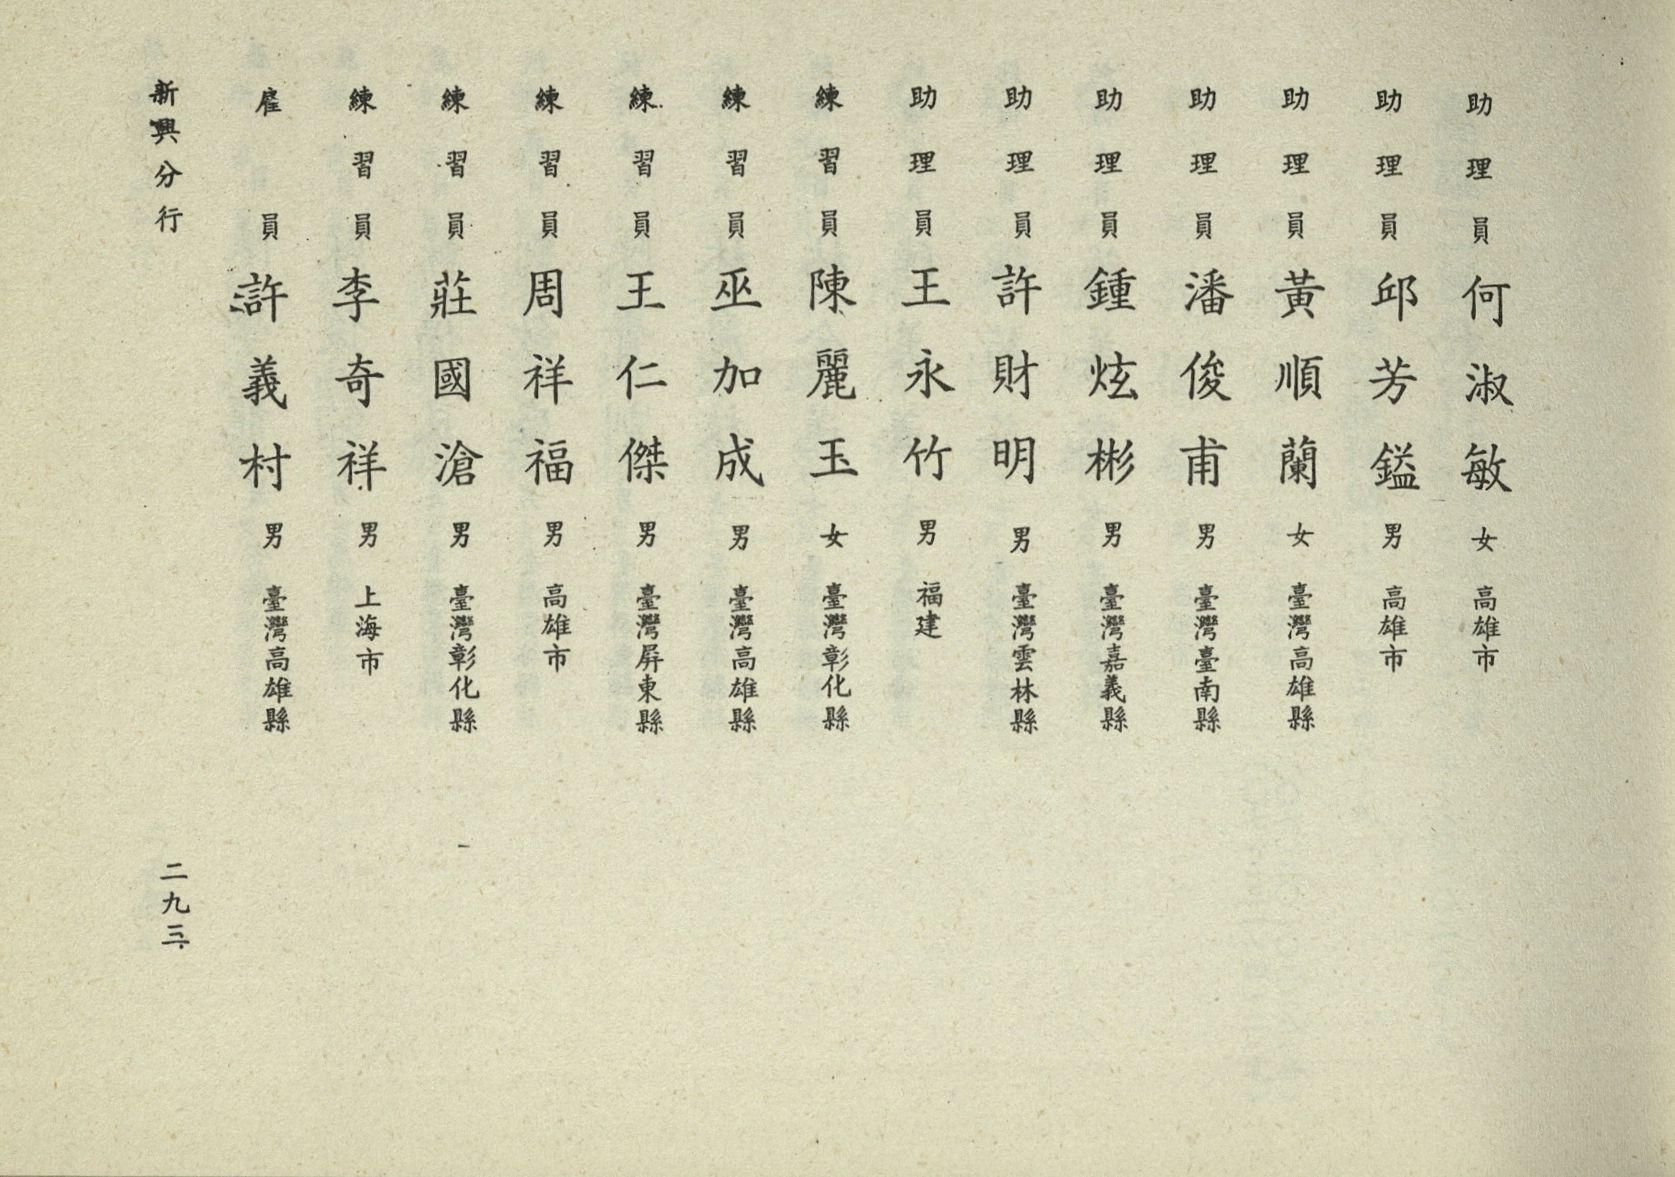 助理員 何淑敏 女 高雄市
助理員 邱芳鎰 男 高雄市
助理員 黃順蘭 女 臺灣高雄縣
助理員 潘俊甫 男 臺灣臺南縣
助理員 鍾炫彬 男 臺灣嘉義縣
助理員 許財明 男 臺灣雲林縣
助理員 王永竹 男 福建
練習員 陳麗玉 女 臺灣彰化縣
練習員 巫加成 男 臺灣高雄縣
練習員 王仁傑 男 臺灣屏東縣
練習員 周祥福 男 高雄市
練習員 莊國滄 男 臺灣彰化縣
練習員 李奇祥 男 上海市
雇員 許義村 男 臺灣高雄縣
新興分行 二九三